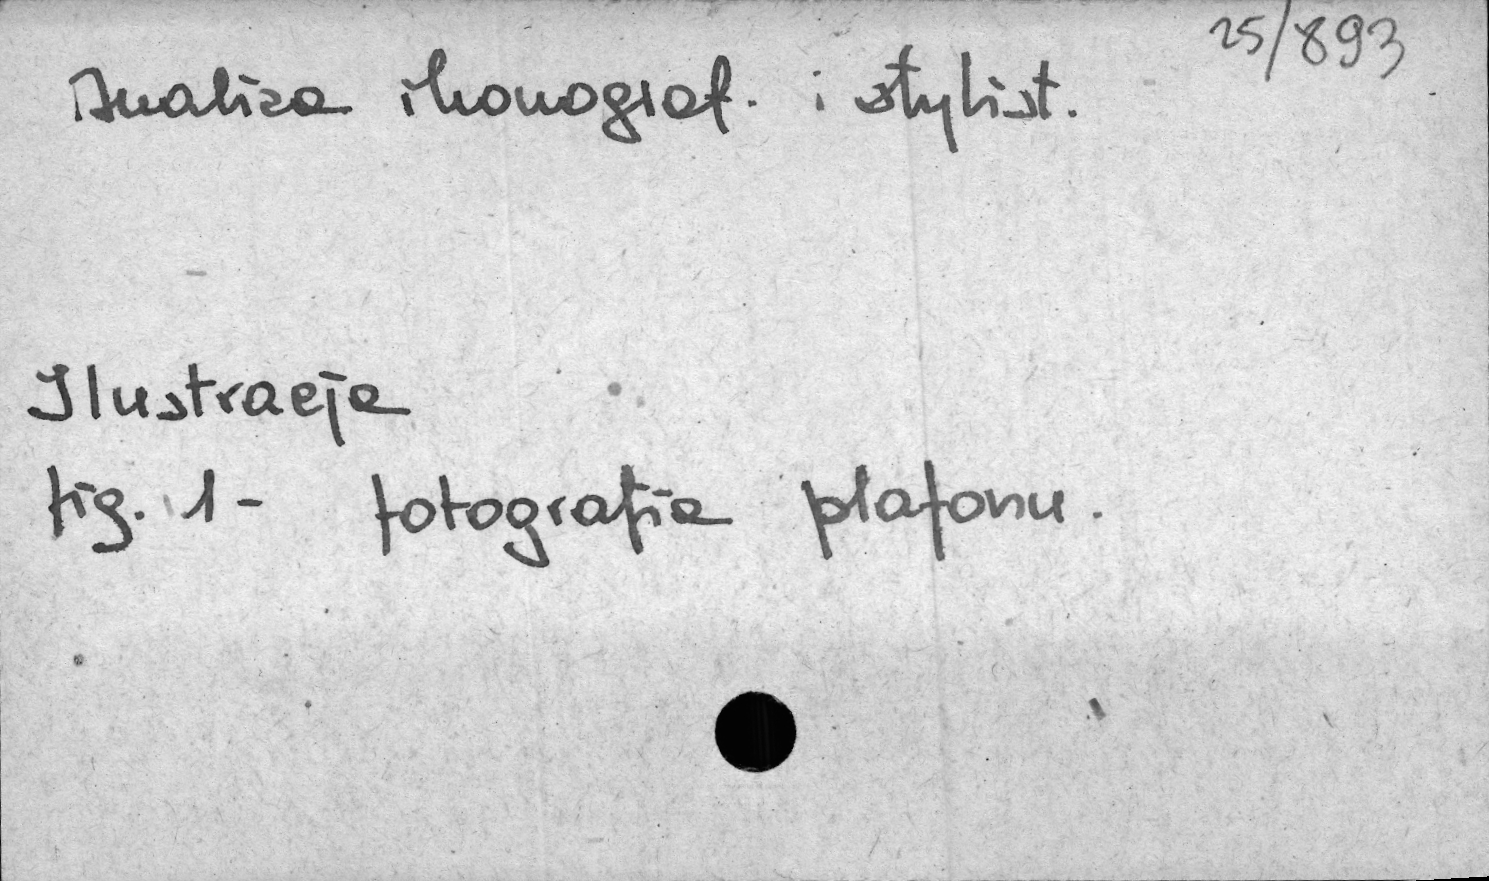 25/893
Analiza ikonograf. i stylist.
Ilustracja
fig. 1- fotografia plafonu.